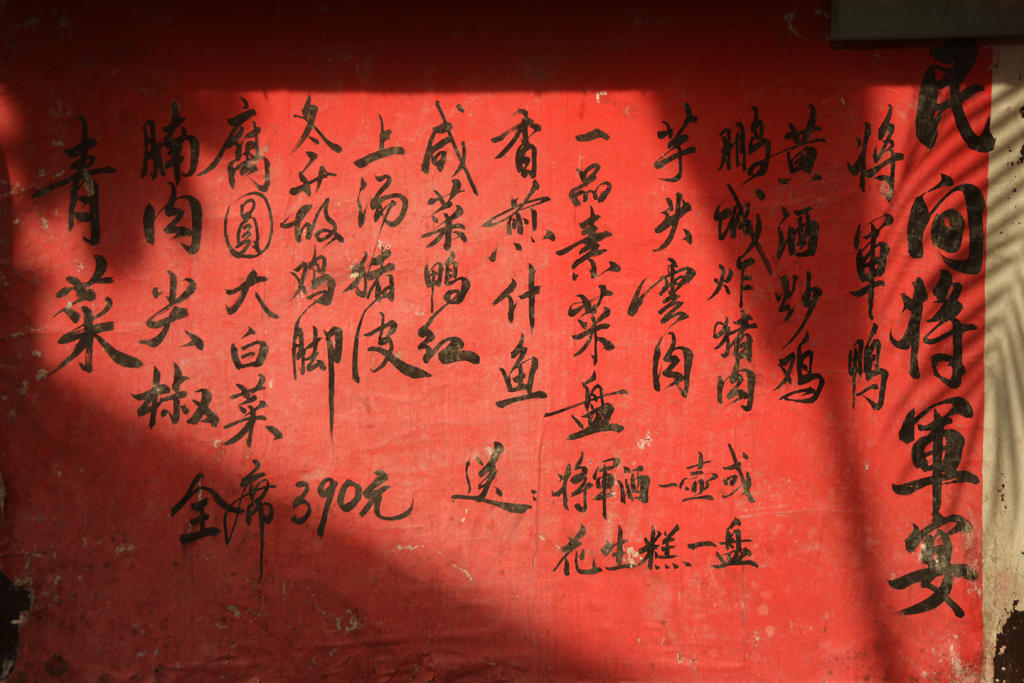 民间将軍宴
将軍鸭
黄酒炒鸡
鹏城炸猪肉
芋头雲肉
一品素菜盘
香煎什鱼
咸菜鸭红
上汤猪皮
冬菇鸡脚
腐圓大白菜
腩肉尖椒
青菜
送:将軍酒一壶或
花生糕一盘
全席390元